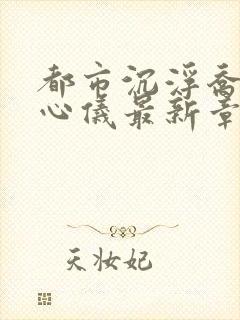 都市沉浮乔
心仪最新章
天妆妃